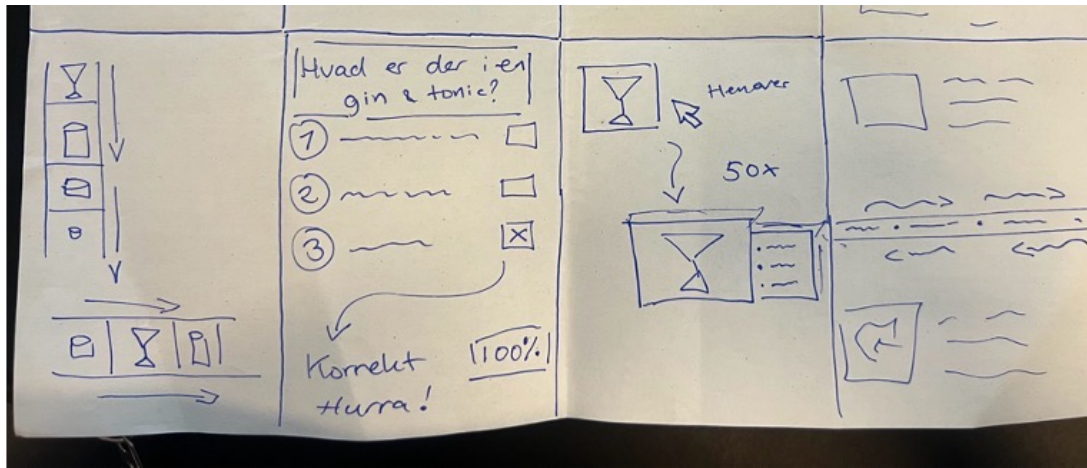 Hvad er der i en
gin & tonic?
1
2
3
X
Korrekt
Hurra!
100%
Henover
50x